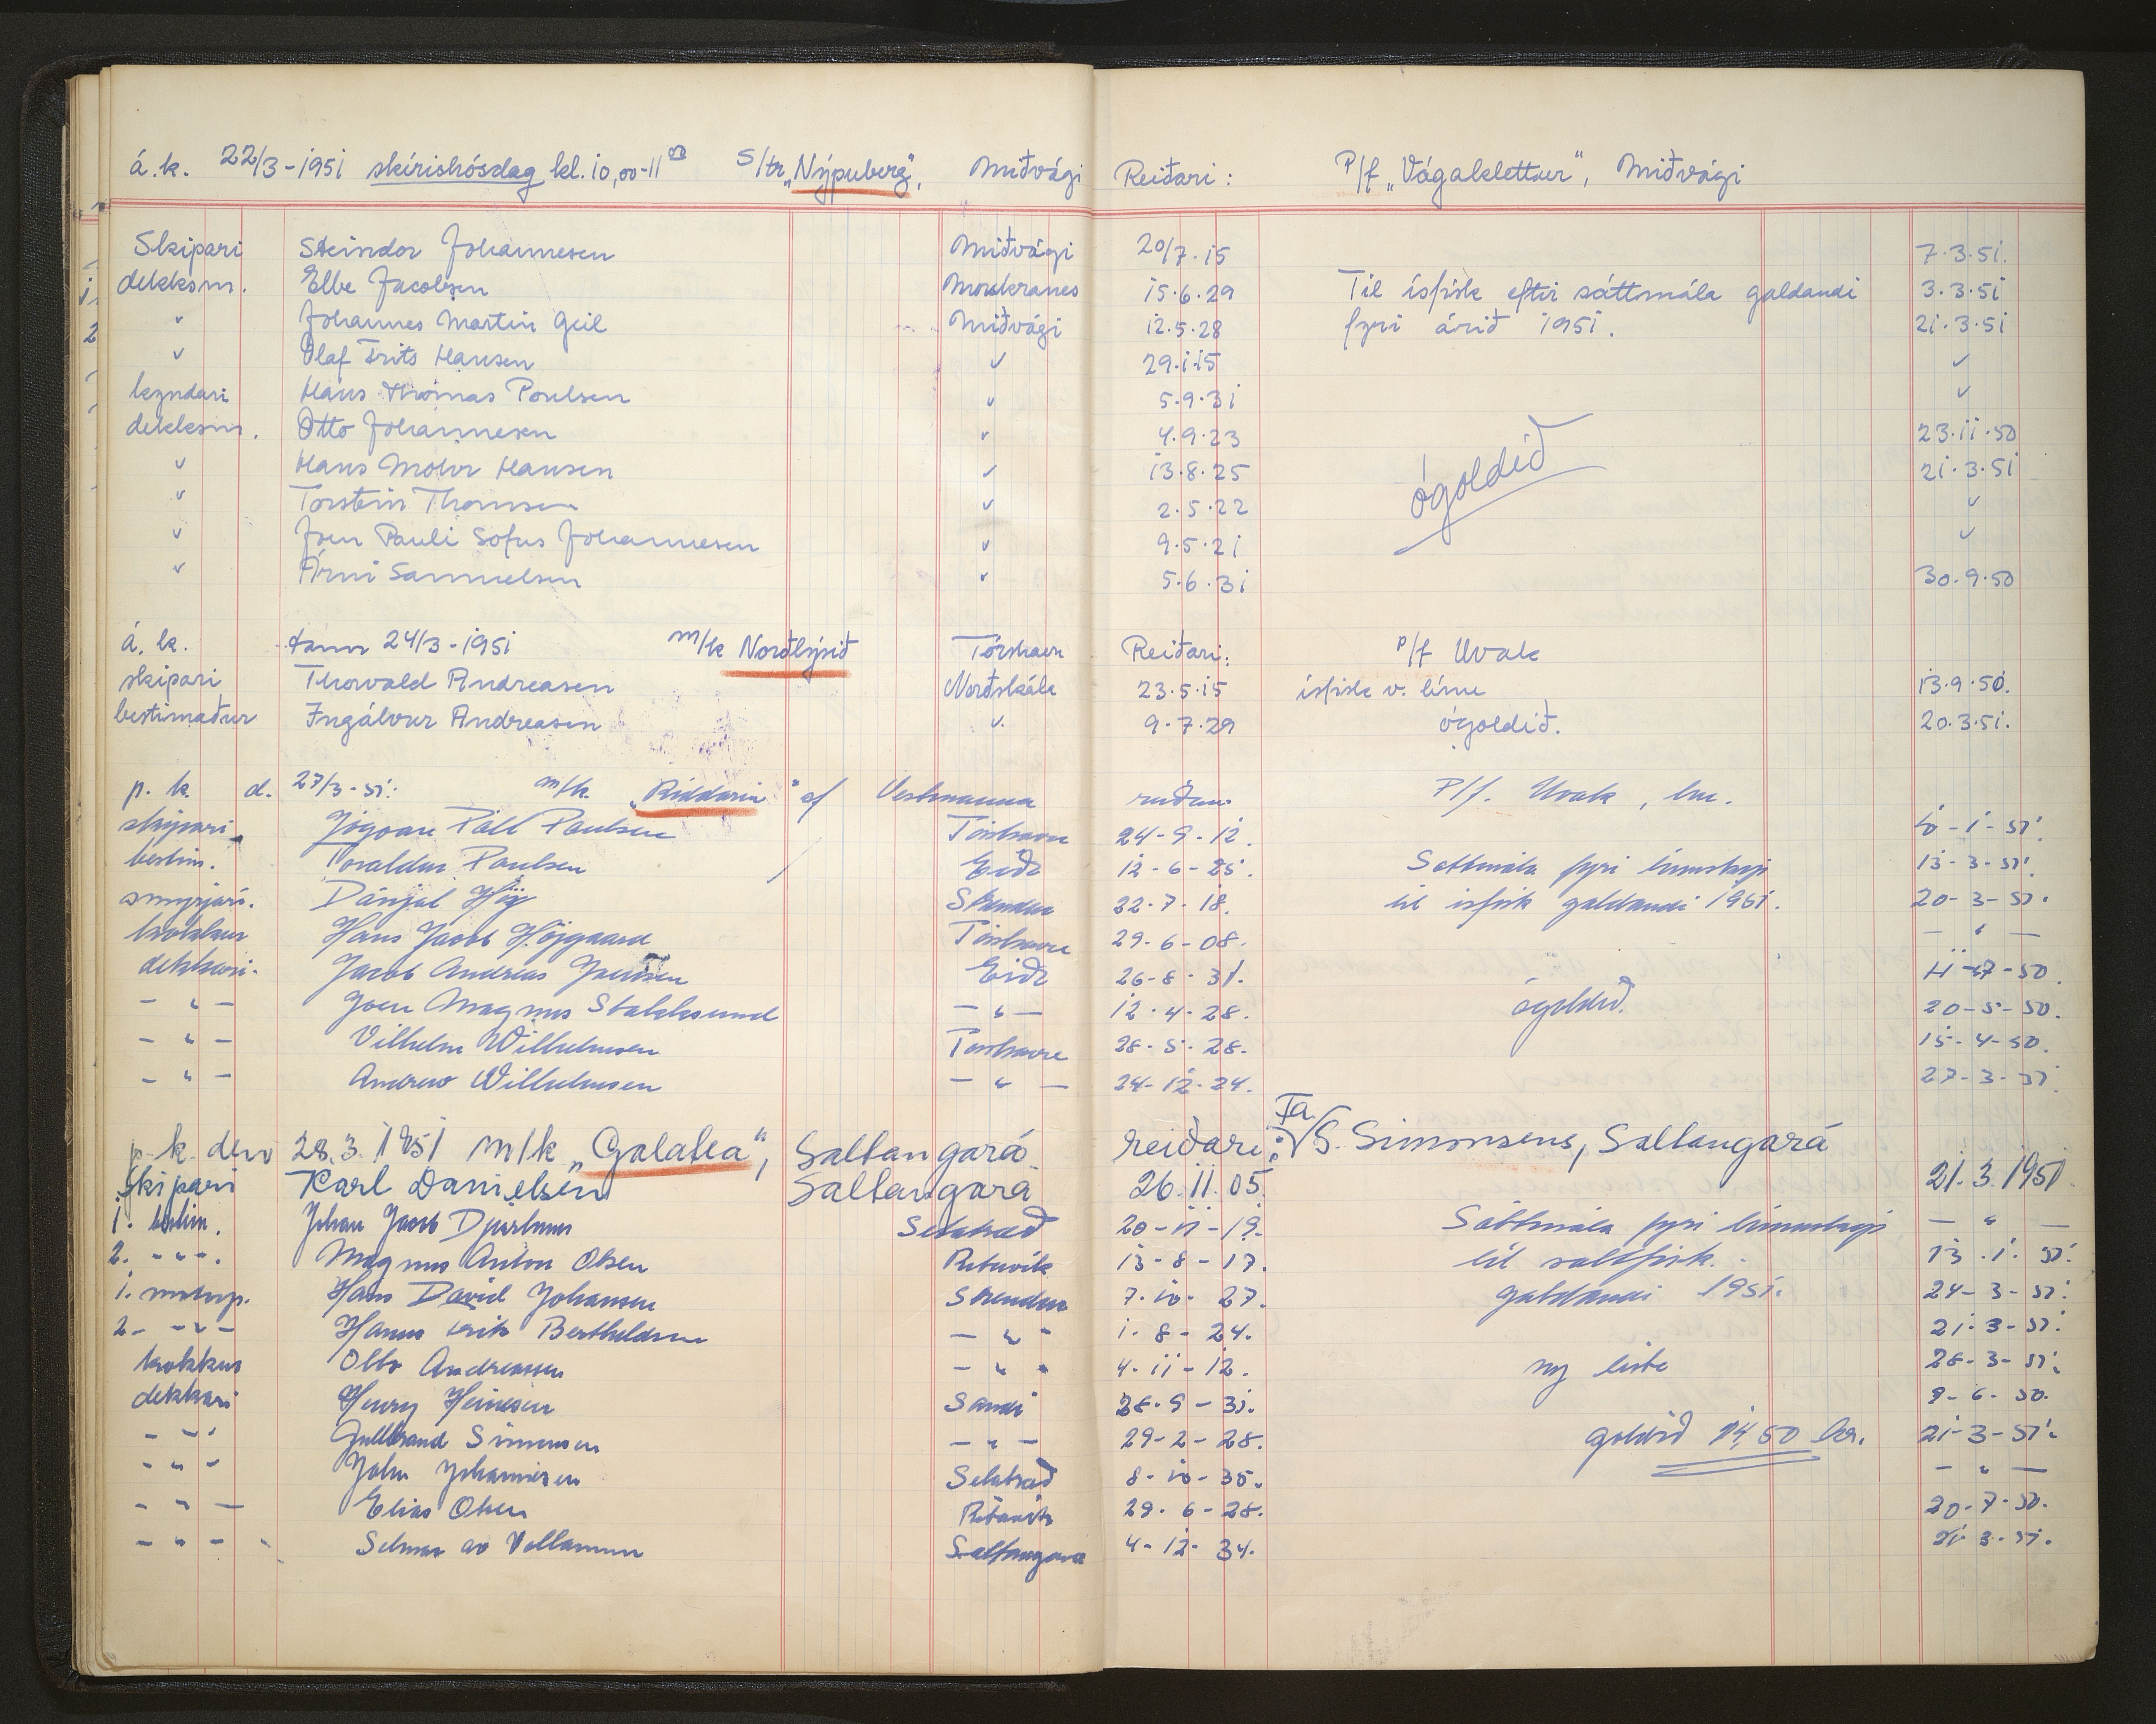 á.k. 22/3-1951 skírishósdag kl. 10,00-11 00 S/tr. „Nýpuberg", Miðvági Reiðari: P/f „Vágaklettur", Miðvági
Skipari Steindor Johannesen Miðvági 20/7.15 7.3.51.
dekksm. Ebbe Jacobsen Morskranes 15.6.29 Til ísfisk eftir sáttmála galdandi 3.3.51
" Johannes Martin Geil Miðvági 12.5.28 fyri árið 1951. 21.3.51
" Olaf Frits Hansen " 29.1.15 "
kyndari Hans Thomas Poulsen " 5.9.31 "
dekksm. Otto Johannesen " 4.9.23 23.11.50
" Hans Mohr Hansen " 13.8.25 ógoldið 21.3.51
" Torstein Thomsen " 2.5.22 "
" Joen Pauli Sofus Johannesen " 9.5.21 "
" Árni Samuelsen " 5.6.31 30.9.50
á.k. tann 24/3-1951 m/k Norðlýsið Tórshavn Reiðari: P/f Uvak
skipari Thorvald Andreasen Norðskála 23.5.15 ísfisk v. línu 13.9.50.
bestimaður Ingálvur Andreasen " 9.7.29 ógoldið. 20.3.51.
p. k. d. 27/3-51. m/k. „Riddarin" af Vestmanna reiðari P/f. Uvak, hn.
skipari Jógvan Páll Paulsen Tórshavn 24-9-12. 10-1-51.
bestim. Toraldur Paulsen Eiði 12-6-25. Sáttmála fyri línuskip 13-3-51.
smyrjari. Dánjal Høj Strendur 22-7-18. til ísfisk galdandi 1951. 20-3-51.
kokkur Hans Jacob Højgaard Tórshavn 29-6-08. — " —
dekkari. Jacob Andreas Joensen Eiði 26-8-31. 11-7-50.
— " — Joen Magnus Stakksund — " — 12-4-28. ógoldið. 20-5-50.
— " — Vilhelm Wilhelmsen Tórshavn 28-5-28. 15-4-50.
— " — Andrew Wilhelmsen — " — 24-12-24. 27-3-51.
p. k. den 28.3.1951 m/k „Galatea", Saltangará reiðari: Fa/S. Simonsens, Saltangará
Skipari Karl Danielsen Saltangará 26.11.05. 21.3.1951.
1. bestim. Johan Jacob Djurhuus Selatrað 20-11-19. Sáttmála fyri línuskip — " —
2. — " — Magnus Anton Olsen Rituvík 13-8-17. til saltfisk. 13.1.51.
1. motorp. Hans David Johansen Strendur 7-10-27. galdandi 1951. 24-3-51.
2. — " — Hanus Erik Bertholdsen — " — 1-8-24. 21-3-51.
kokkur Otto Andreassen — " — 4-11-12. ny liste 28-3-51.
dekkari Henry Heinesen Sandi 28-9-31. 9-6-50.
— " — Gullbrand Simonsen — " — 29-2-28. goldið 14,50 kr. 21-3-51.
— " — John Johannesen Selatrað 8-10-35. — " —
— " — Elias Olsen Rituvík 29-6-28. 20-7-50.
— " — Selmar av Vollanum Saltangará 4-12-34. 21-3-51.